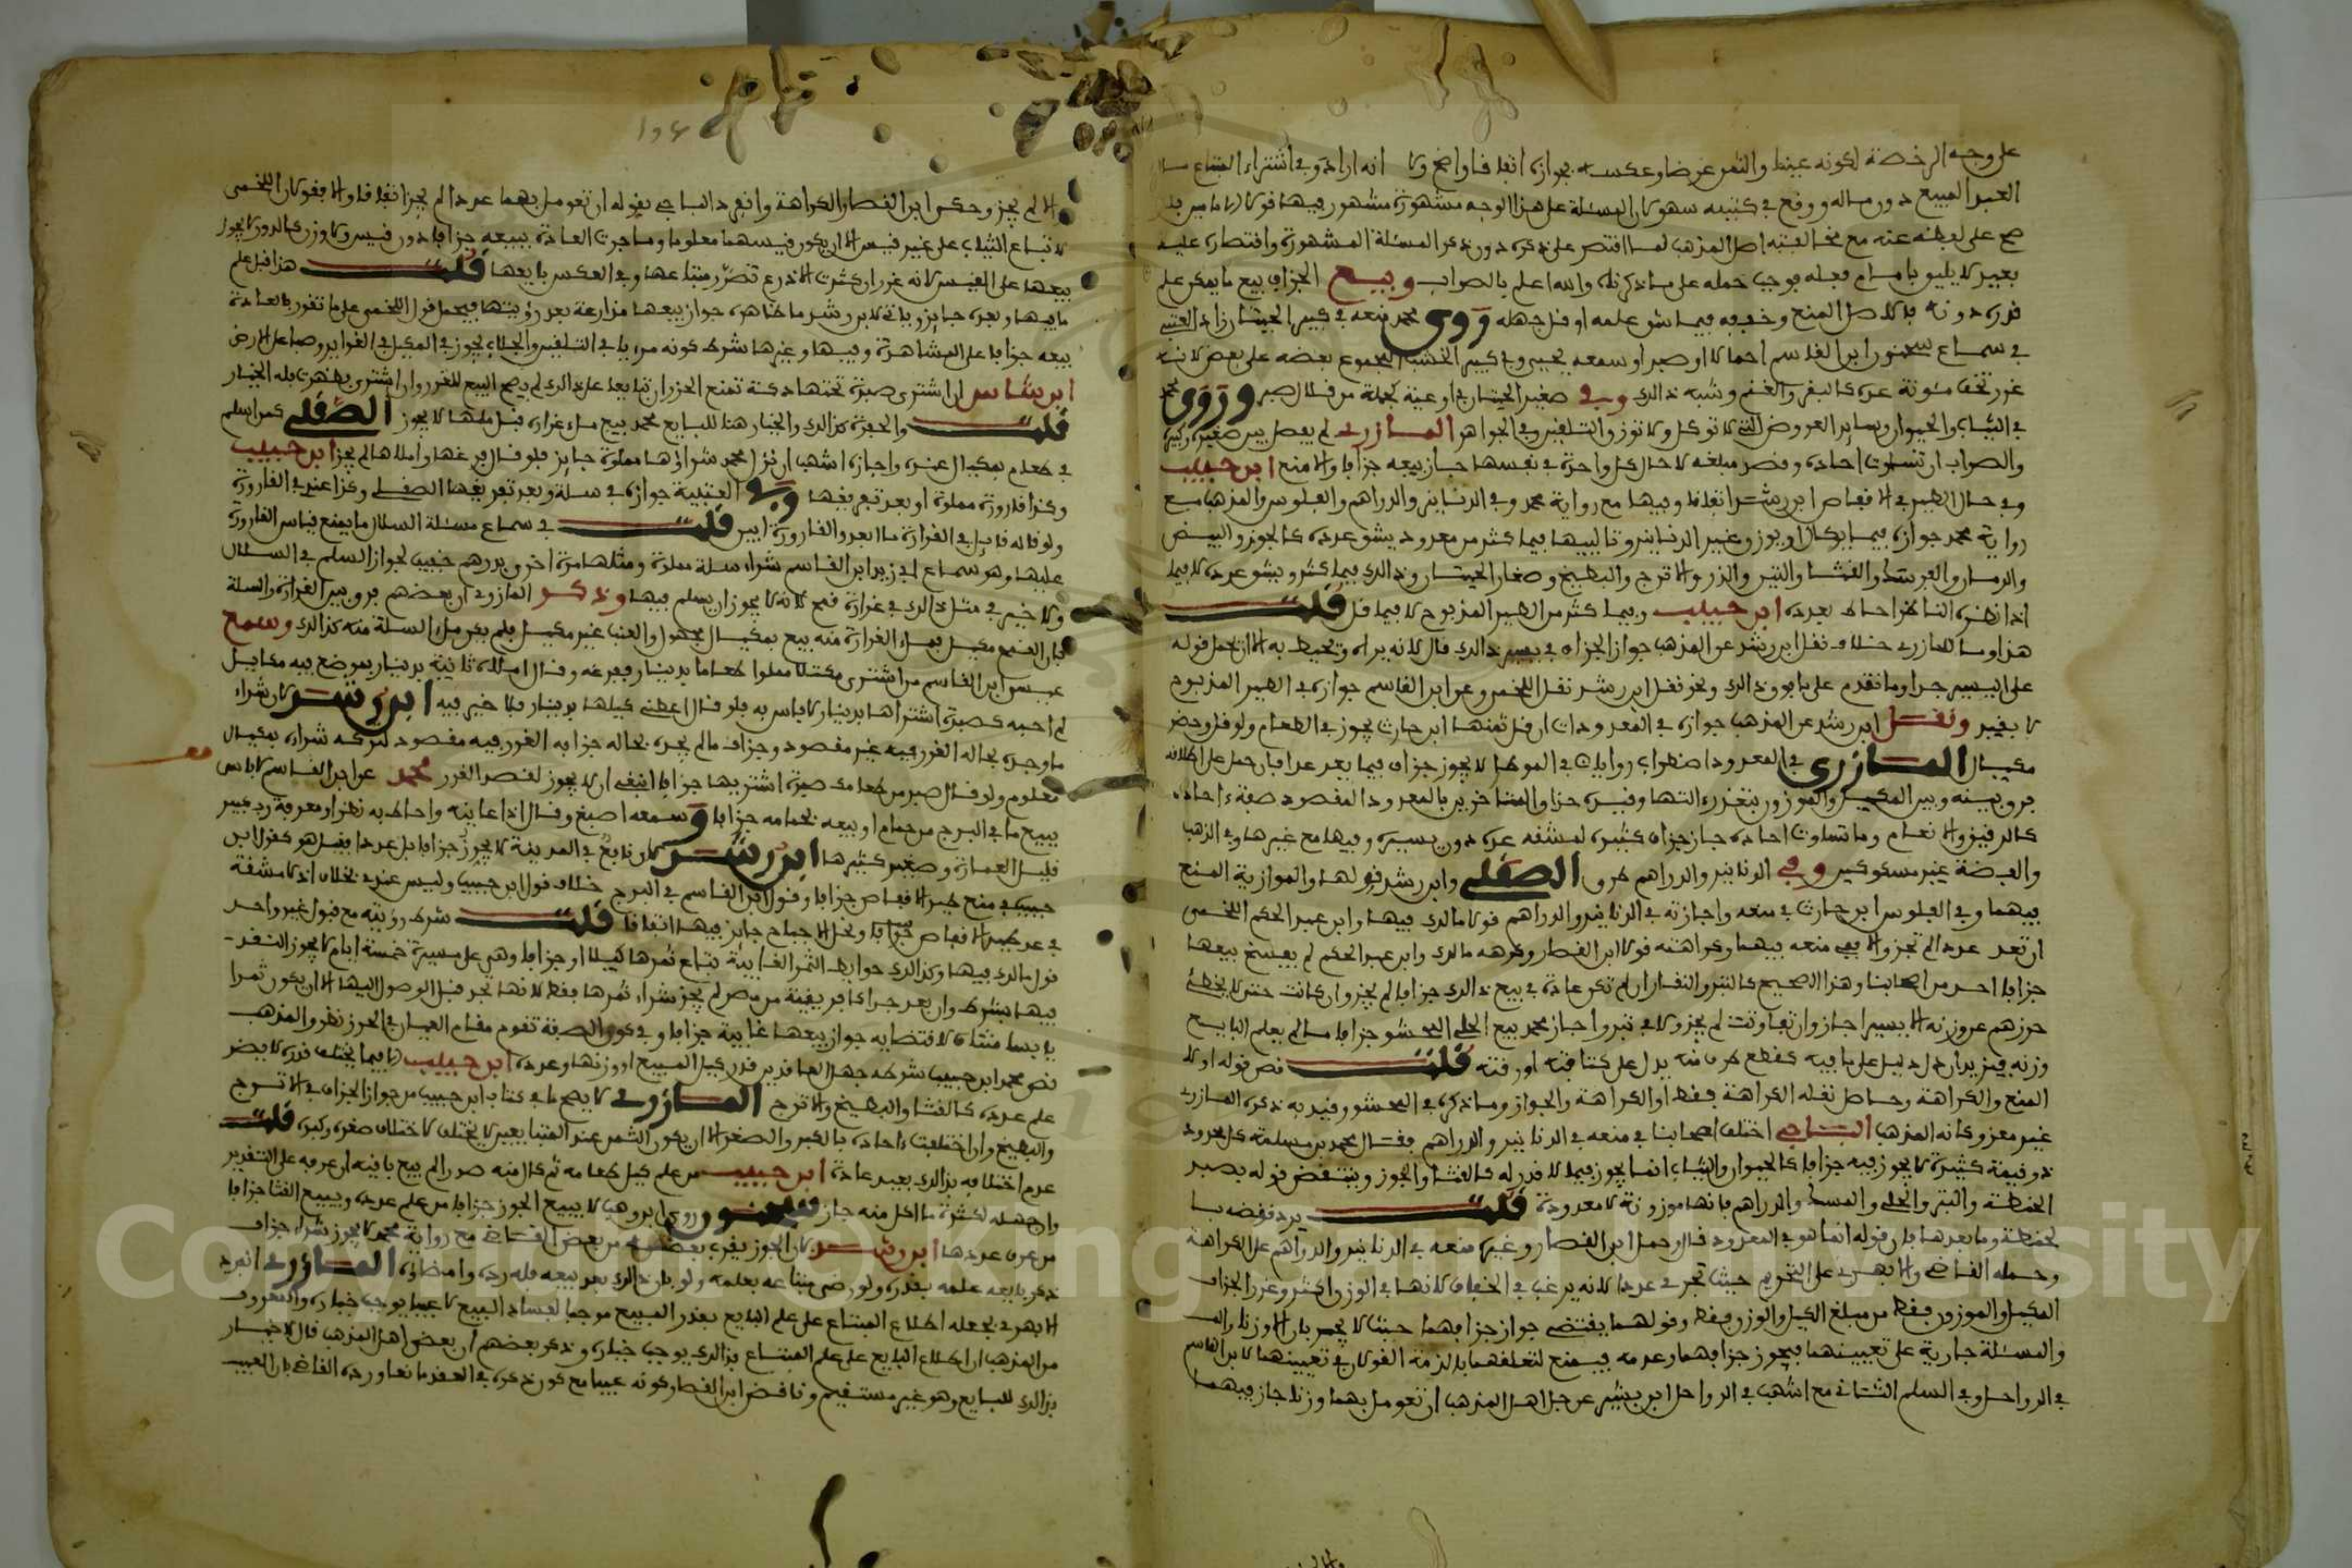 على وجه الرخصة لكونه عينا والثمر عرضا وعكسه بجوازه اتفاقا واضح ولا انه اراده وفي اشتراء المبتاع مال
العبد المبيع دون ماله ووقع في كتبه سهو كان المسئلة على هذا الوجه مشهورة مشهور فيها قولان
صح على لفظه عنه مع مخالفته اصل المذهب لما اقتصر على ذكره دون ذكر المسئلة المشهورة واقتصاره عليه
بعيد لا يليق بامام فعله يوجب حمله على ما ذكرناه والله اعلم بالصواب وبيع الجزاف بيع ما يمكن علم
قدره دونه والاصل المنع وخفف فيما شق علمه او قل جهله روى محمد منعه في كبير الحيتان زاد العتبي
في سماع سحنون ابن القاسم احمالا او صبرا وسمعه يحيى وفي كبير الخشب المجموع بعضه على بعض لانه
غرر تخف مئونة عدده كالبقر والغنم وشبه ذلك وفي صغير الحيتان في اوعية كجملة من قلال الصير وروى محمد
في الثياب والحيوان وسائر العروض التي لا توكل ولا توزن والتلقين وفي الجواهر المازري لم يفصل بين صغيره وكبيره
والصواب ان تساوت احاده وقصد مبلغه لا حال كل واحدة في نفسها جاز بيعه جزافا والا منع ابن حبيب
وفي حال الطير في الاقفاص ابن رشد اتفاقا وفيها مع رواية محمد وفي الدنانير والدراهم والفلوس والمذهب مع
رواية محمد جوازه فيما يكال او يوزن وغير الدنانير وتاليها فيما كثر من معدود يشق عدده كالجوز والبيض
والرمان والفرسك والقثا والتين والنذر والاترج والبطيخ وصغار الحيتان وذلك فيما كثر ويشق عدده لا فيما
اذا نظره الناظر احاط بعدده ابن حبيب وفيما كثر من الطير المذبوح لا فيما قل قلت
هذا وما للمازري خلاف نقل ابن رشد عن المذهب جواز الجزاف في يسير ذلك قال لانه يراه ويحيط به الا ان يحمل قوله
على اليسير جدا وما تقدم على ما فوق ذلك ونحو نقل ابن رشد نقل اللخمي وعن ابن القاسم جوازه في الطير المذبوح
لا بغير ونقل ابن رشد عن المذهب جوازه في المعدودات ان قل ثمنها ابن حارث يجوز في الطعام ولو قل وحضر
مكيال المازري في المعدود اضطراب روايات في الموطا لا يجوز جزاف فيما يعد عدا فان حمل على اطلاقه
فرق بينه وبين المكيل والموزون بتعذر التها وفيده حذاق المتاخرين بالمعدود المقصود صفة احاده
كالرقيق والانعام وما تساوت احاده جاز جزاف كثيره لمشقة عدده دون يسيره وفيها مع غيرها وفي الذهب
والفضة غير مسكوكين وفي الدنانير والدراهم طرق الصقلي وابن رشد قولها والموازية المنع
فيهما وفي الفلوس ابن حارث في منعه واجازته في الدنانير والدراهم قولا مالك فيها وابن عبد الحكم اللخمي
ان تعد عددا لم تجز والا ففي منعه فيهما وكراهته قولا ابن القصار وكرهه مالك وابن عبد الحكم لم يفسخ بيعها
جزافا احد من اصحابنا وهذا الصحيح كالتبر والنقار ان لم تكن عادة في بيع ذلك جزافا لم يجز وان كانت حتى لا يخطئ
حرزهم عن وزنه الا بيسير اجاز وان تفاوتت لم يجز ولا في تبر واجاز محمد بيع الحلي المحشو جزافا ما لم يعلم البايع
وزنه فيزيد ان دل دليل على ما فيه كقطع طرف منه يدل على كثافته او رقته قلت نص قوله اولا
المنع والكراهة وحاصل نقله الكراهة فقط او الكراهة والجواز وما ذكره في المحشو وفيد به ذكره المازري
غير معزو كانه المذهب الباجي اختلف اصحابنا في منعه في الدنانير والدراهم فقال محمد بن مسلمة كل معدود
ذو قيمة كثيرة لا يجوز فيه جزافا كالحيوان والثياب انما يجوز فيما لا قدر له كالقثا والجوز وينتقض قوله بصبر
الحنطة والتبر والحلي والمسك والدراهم فانها موزونة لا معدودة قلت يرد نقضه بـ
لحنطة وما بعدها بان قوله انما هو في المعدود قال وحمل ابن القصار وغيره منعه في الدنانير والدراهم على الكراهة
وحمله القاضي والابهري على التحريم حيث تجري عددا لانه يرغب في الخفاف لانها في الوزن اكثر وغرر الجزاف
المكيل والموزون فقط من مبلغ الكيل والوزن فقط وقولهما يقتضي جواز جزافهما حيث لا يجري بان الا وزنا
والمسئلة جارية على تعيينهما فيجوز جزافهما وعدمه فيمنع لتعلقهما بالذمة القولان في تعيينهما لابن القاسم
في الرواحل وفي السلم الثاني مع اشهب في الرواحل ابن بشير عن جل اهل المذهب ان تعومل بهما وزنا جاز فيهما
والا لم يجز وحكى ابن القصار الكراهة وانفرد الباجي بقوله ان تعومل بهما عددا لم يجز اتفاقا والا فقولان اللخمي
لا تباع الثياب على غير قيس الا ان يكون قيسهما معلوما وما جرت العادة ببيعه جزافا دون قيس ولا وزن كالدور لا يجوز
بيعها على القيس لانه غرر ان كثرت الاذرع تضرر مبتاعها وفي العكس بايعها قلت هذا قبل علم
ما فيها وبعده جايز وياتي لابن رشد ما ظاهره جواز بيعها مزارعة بعد رؤيتها فيحمل قول اللخمي على ما تقرر بالعادة
بيعه جزافا على المشاهدة وفيها وغيرها شرط كونه مريا في التلقين والجلاب يجوز في المكيل في الغراير وصبا على الارض
ابن شاس ان اشترى صبرة تحتها دكة تمنع الحزر ان تبايعا على ذلك لم يصح البيع للغرر وان اشترى فظهرت فله الخيار
قلت والحفرة كذلك والخيار هنا للبايع محمد بيع ملء غرارة قبل ملئها لا يجوز الصقلي كمن اسلم
في طعام بمكيال عنده واجازه اشهب ان نزل محمد شراؤها مملوة جايز فلو قال فرغها واملاها لم يجز ابن حبيب
وكذا قارورة مملوة او بعد تفريغها وفي العتبية جوازه في سلة وبعد تفريغها الصقلي وكذا عندي في القارورة
ولو قاله قايل في الغرارة ما ابعد والقارورة ابين قلت في سماع مسئلة السلال ما يمنع قياس القارورة
عليها وهو سماع ابي زيد ابن القاسم شراء سلة مملوة ومثلها مرة اخرى بدرهم خفيف لجواز السلم في السلال
ولا خير في مثل ذلك في غرارة قمح لانه لا يجوز ان يسلم فيها وذكر المازري ان بعضهم فرق بين الغرارة والسلة
بان القمح مكيل فملء الغرارة منه بيع بمكيال مجهول والعنب غير مكيل فلم يكن ملء السلة منه كذلك وسمع
عيسى ابن القاسم من اشترى مكتلا مملوا طعاما بدينار ففرغه وقال املاه ثانية بدينار بموضع فيه مكاييل
لم احبه كصبرة اشتراها بدينار لا باس به فلو قال اعطني كيلها بدينار فلا خير فيه ابن رشد لان شراء
ما وجده بحاله الغرر فيه غير مقصود وجزاف ما لم يجده بحاله جزافه الغرر فيه مقصود لتركه شراءه بمكيال
معلوم ولو قال صبر من طعامك صبرة اشتريها جزافا انبغى ان لا يجوز لقصد الغرر محمد عن ابن القاسم لا باس
ببيع ما في البرج من حمام او بيعه بحمامه جزافا وسمعه اصبغ وقال اذا عاينه واحاط به نظرا ومعرفة
قليل العمارة وصغير كثيرها ابن رشد كان نافع في المدينة لا يجوز جزافا بل عددا فقيل هو كقول ابن
حبيب في منع طير الاقفاص جزافا وقول ابن القاسم في البرج خلاف قول ابن حبيب وليس عندي بخلاف اذ لا مشقة
في عد طير الاقفاص جزافا ونحل الاجباح جايز فيها اتفاقا قلت شرط رؤيته مع قبول غير واحد
قول مالك فيها وكذلك حوايط الثمر الغايبة يباع ثمرها كيلا او جزافا وهي على مسيرة خمسة ايام لا يجوز النقد
فيها بشرط وان بعد جدا كافريقية من مصر لم يجز شراء ثمرها فقط لانها تجد قبل الوصول اليها الا ان يكون ثمرا
يابسا مثله لاقتضايه جواز بيعها غايبة جزافا وفي كون الصفة تقوم مقام العيان في الحزر نظر والمذهب
نص محمد ابن حبيب شرطه جهل العاقدين قدر كيل المبيع او وزنها وعدده ابن حبيب لا فيما يختلف قدره لا يضر
علم عدده كالقثا والبطيخ والاترج المازري لا يصح ما في كتاب ابن حبيب من جواز الجزاف في الاترج
والبطيخ وان اختلفت احاده بالكبر والصغر الا ان يكون الثمن عند المبتايعين لا يختلف لاختلاف صغره وكبره قلت
عدم اختلافه بذلك بعيد عادة ابن حبيب من علم كيل طعامه ثم كال منه صدرا لم يبع باقيه ان عرفه على التقدير
وان جهله لكثرة ما اكل منه جاز وروى ابن وهب لا يبيع الجوز جزافا من علم عدده ويبيع القثا جزافا
من عرف عددها ابن رشد لان الجوز يقرب بعضه من بعض القاضي مع رواية محمد لا يجوز شراء جزاف
ذكر بايعه علمه بقدره ولو رضى مبتاعه بعلمه ولو بان ذلك بعد بيعه فله رده وامضاؤه المازري انفرد
الابهري بجعله اطلاع المبتاع على علم البايع بقدر المبيع موجبا لفساد البيع لا عيبا يوجب خياره والمعروف
من المذهب ان اطلاع البايع على علم المبتاع بذلك يوجب خياره وذكر بعضهم ان بعض اهل المذهب قال لا خيار
بذلك للبايع وهو غير مستقيم وناقض ابن القصار كونه عيبا مع كون ذكره في العقد مانعا ورده القاضي بان العيب